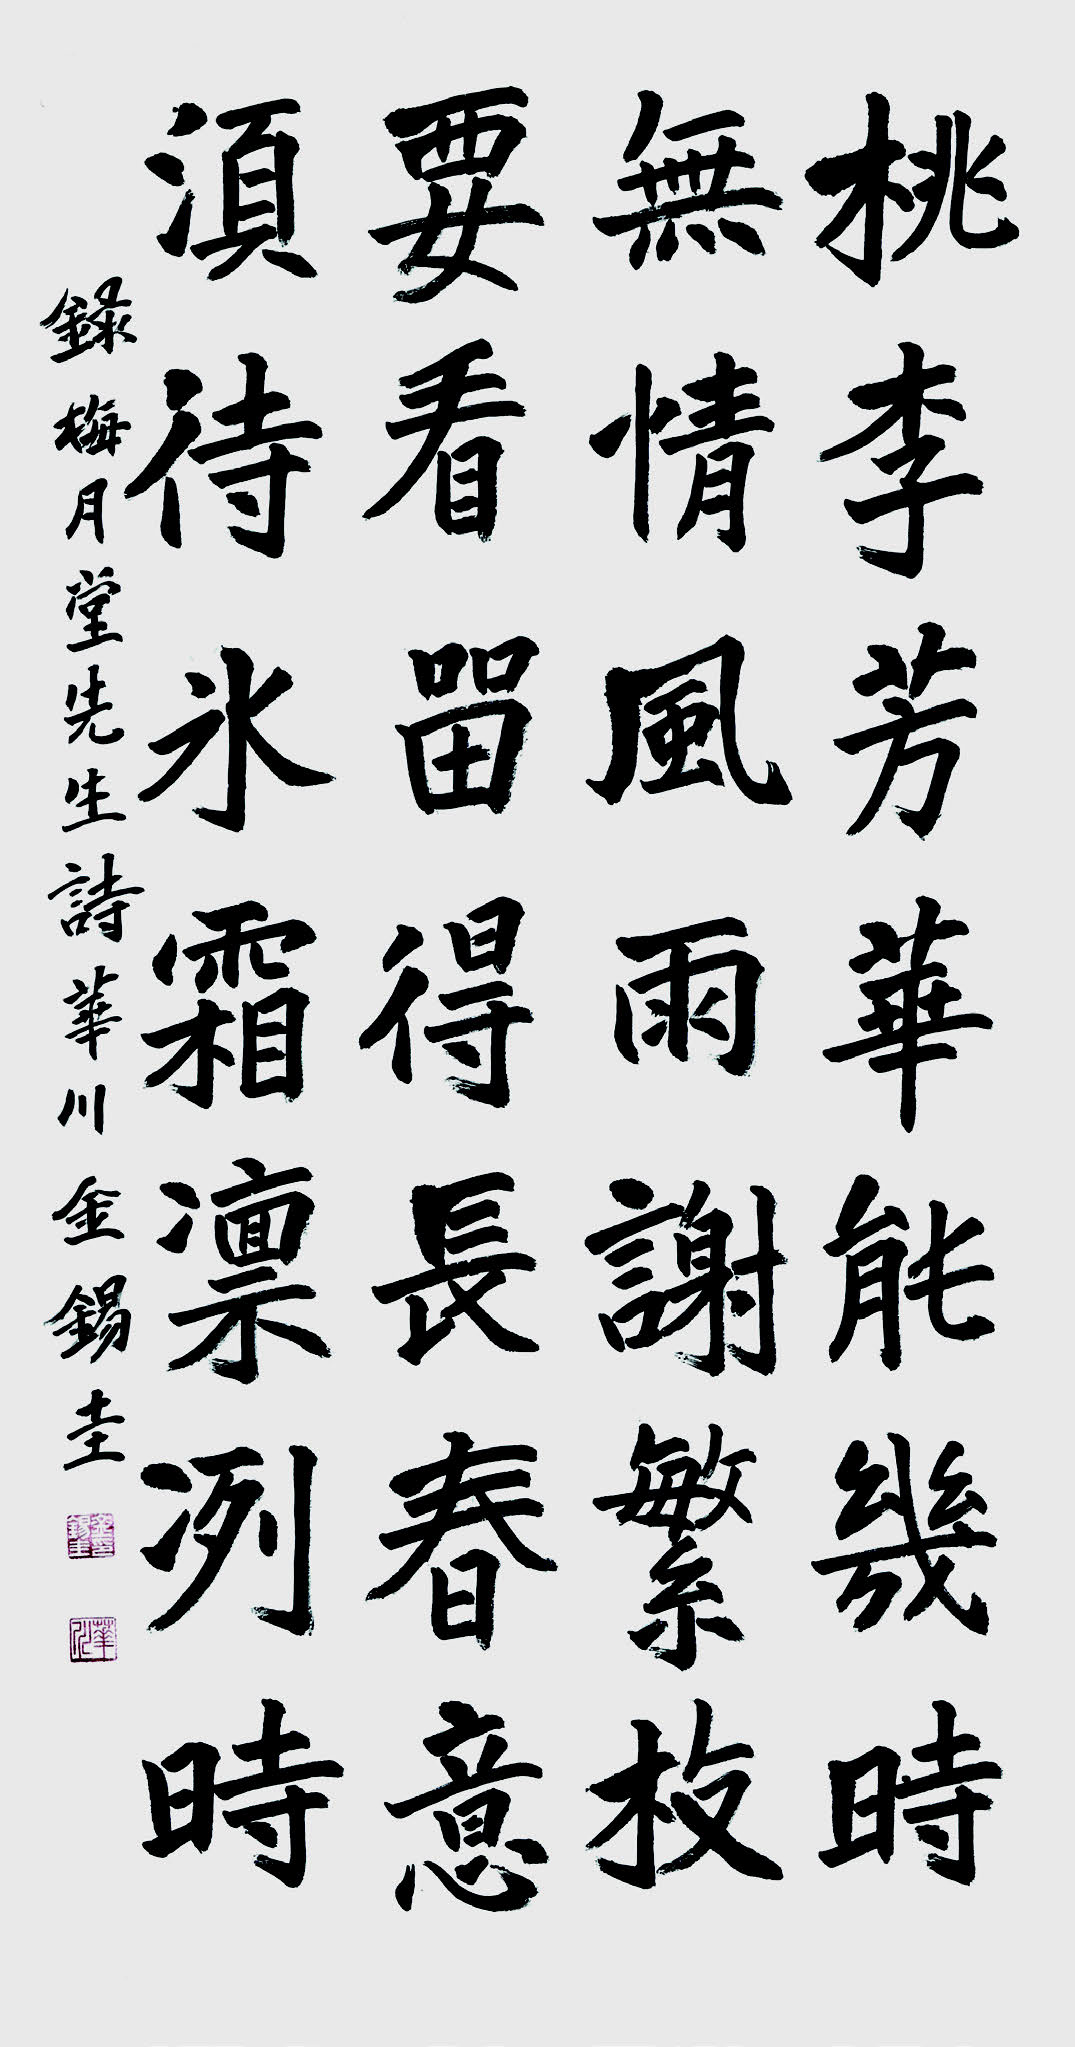 桃李芳華能幾時
無情風雨謝繁枝
要看留得長春意
須待氷霜凛冽時
錄梅月堂先生詩華川金錫圭